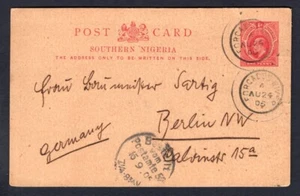 POST CARD
SOUTHERN NIGERIA
THE ADDRESS ONLY TO BE WRITTEN ON THIS SIDE.
Frau Baumeister Sartig
Berlin NW
Germany
Calvinstr. 15a
FORCADOS
AU 29